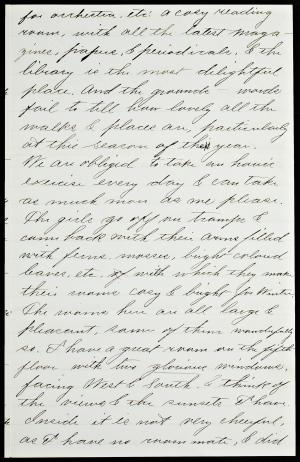 for orchestra, etc. a cosy reading
room, with all the latest maga-
zines, papers, & periodicals, & the
library is the most delightful
place. And the grounds - words
fail to tell how lovely all the
walks & places are, particularly
at this season of the year.
We are obliged to take an hour's
exercise every day & can take
as much more as we please.
The girls go off on tramps &
came back with their arms filled
with ferns, mosses, bright colored
leaves, etc. with which they make
their rooms cosy & bright for Winter.
The rooms here are all large &
pleasant, some of them wonderfully
so. I have a great room on the fifth
floor with two glorious windows,
facing West & South. & think of
the views & the sunsets I have.
Inside it is not very cheerful,
as I have no room mate, & did